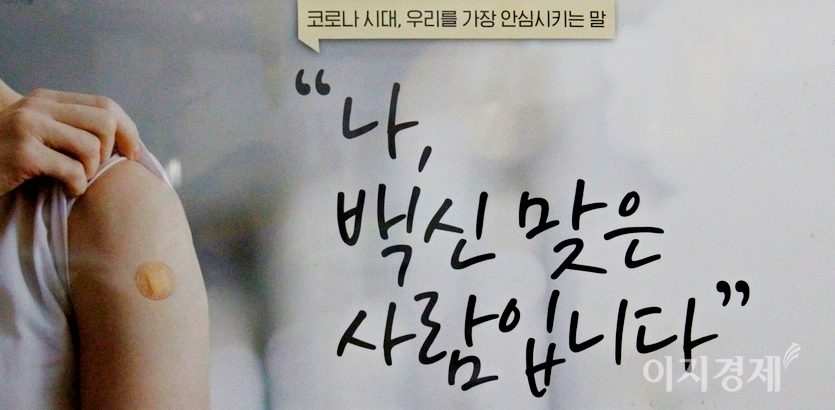 코로나 시대, 우리를 가장 안심시키는 말
“나,
백신 맞은
사람입니다”
이지경제